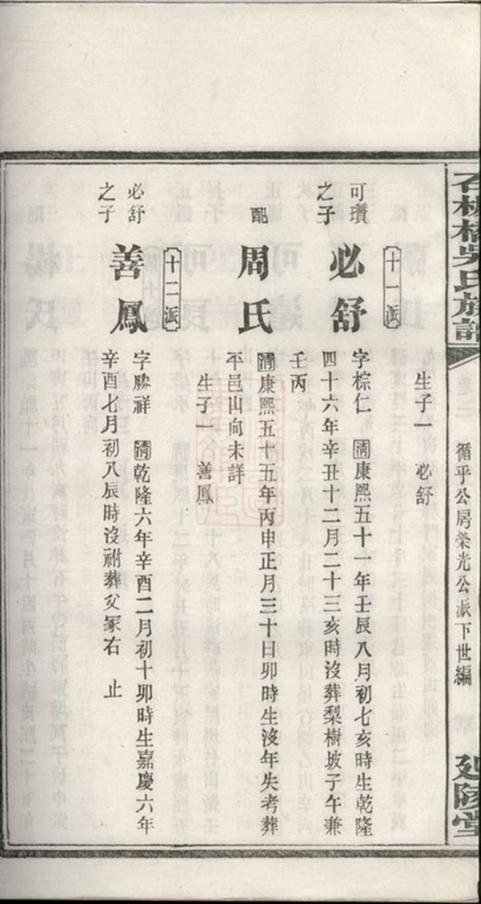 石板橋吳氏族譜
卷二
循乎公房榮光公派下世編
延陵堂
生子一 必舒
十一派
可瓚之子
必舒
字棕仁 清康熙五十一年壬辰八月初七亥時生乾隆
四十六年辛丑十二月二十三亥時沒葬梨樹坡子午兼
壬丙
配
周氏
清康熙五十五年丙申正月三十日卯時生沒年失考葬
平邑山向未詳
生子一 善鳳
十二派
必舒之子
善鳳
字勝祥 清乾隆六年辛酉二月初十卯時生嘉慶六年
辛酉七月初八辰時沒祔葬父冢右 止